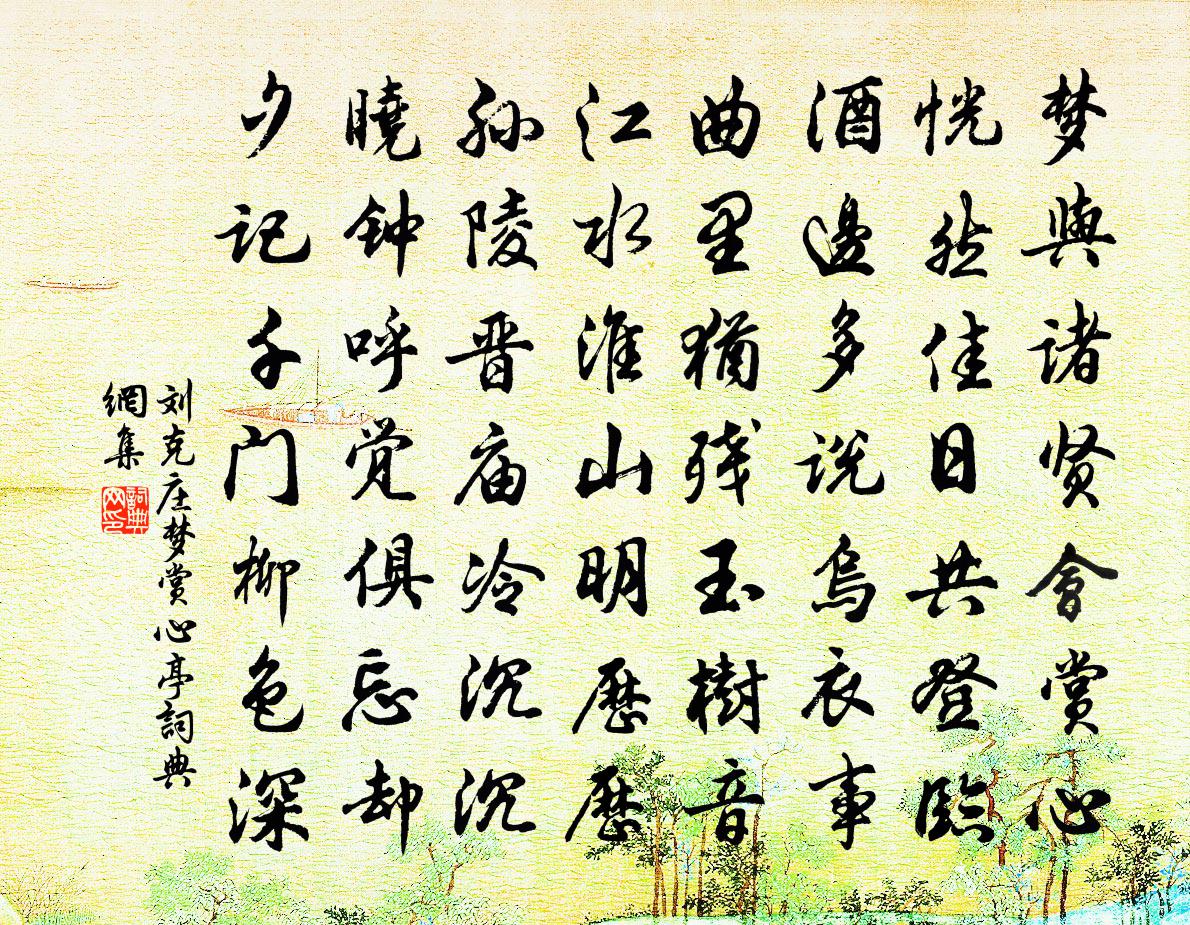 梦與诸贤會赏心
恍然佳日共登臨
酒邊多说烏衣事
曲里猶残玉樹音
江水淮山明歷歷
孙陵晋庙冷沉沉
曉钟呼觉俱忘却
夕记千门柳色深
刘克庄梦赏心亭詞典
網集
詞典
网印